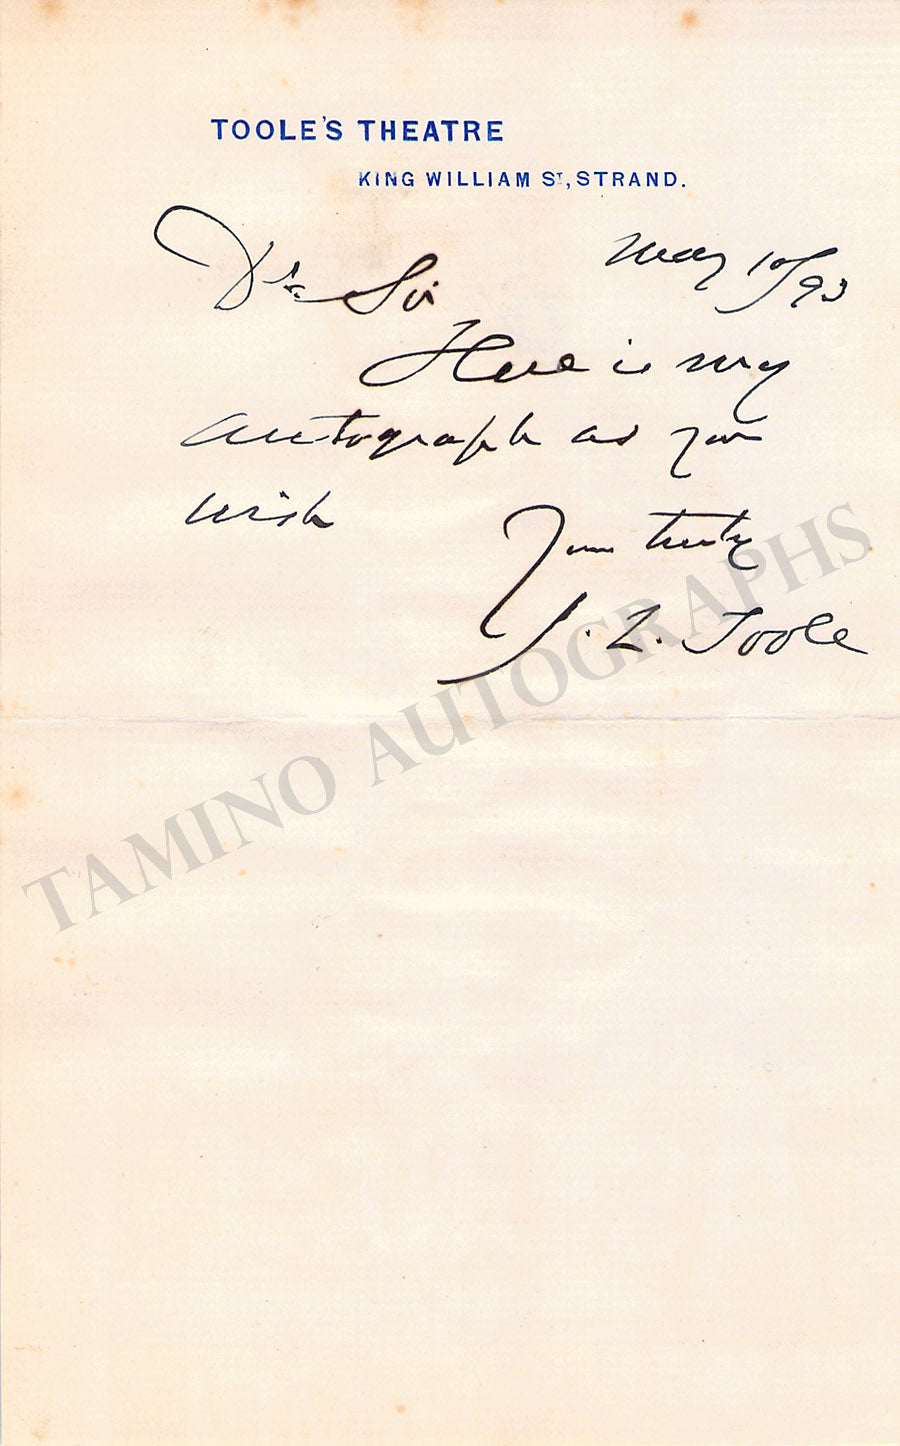 TOOLE'S THEATRE
KING WILLIAM ST, STRAND.
May 10/93
Dr Sir
Here is my
autograph as you
wish
Yours truly
J. L. Toole
TAMINO AUTOGRAPHS